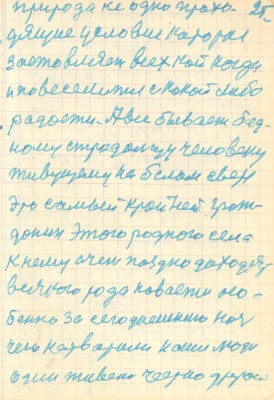 природа не одно прохо- 25
дящие условие которое
заставляет всех ной когда
и повеселится с какой либо
радости. А все бывает бед-
ному страдающему человеку
живущему на белом свете
Это самый крайней граж-
данин этого родного села
к нему очень поздно доходят
всякого рода новости осо-
бенно за сегодняшнию ноч
чего натварили наши люди
один живет черно другой